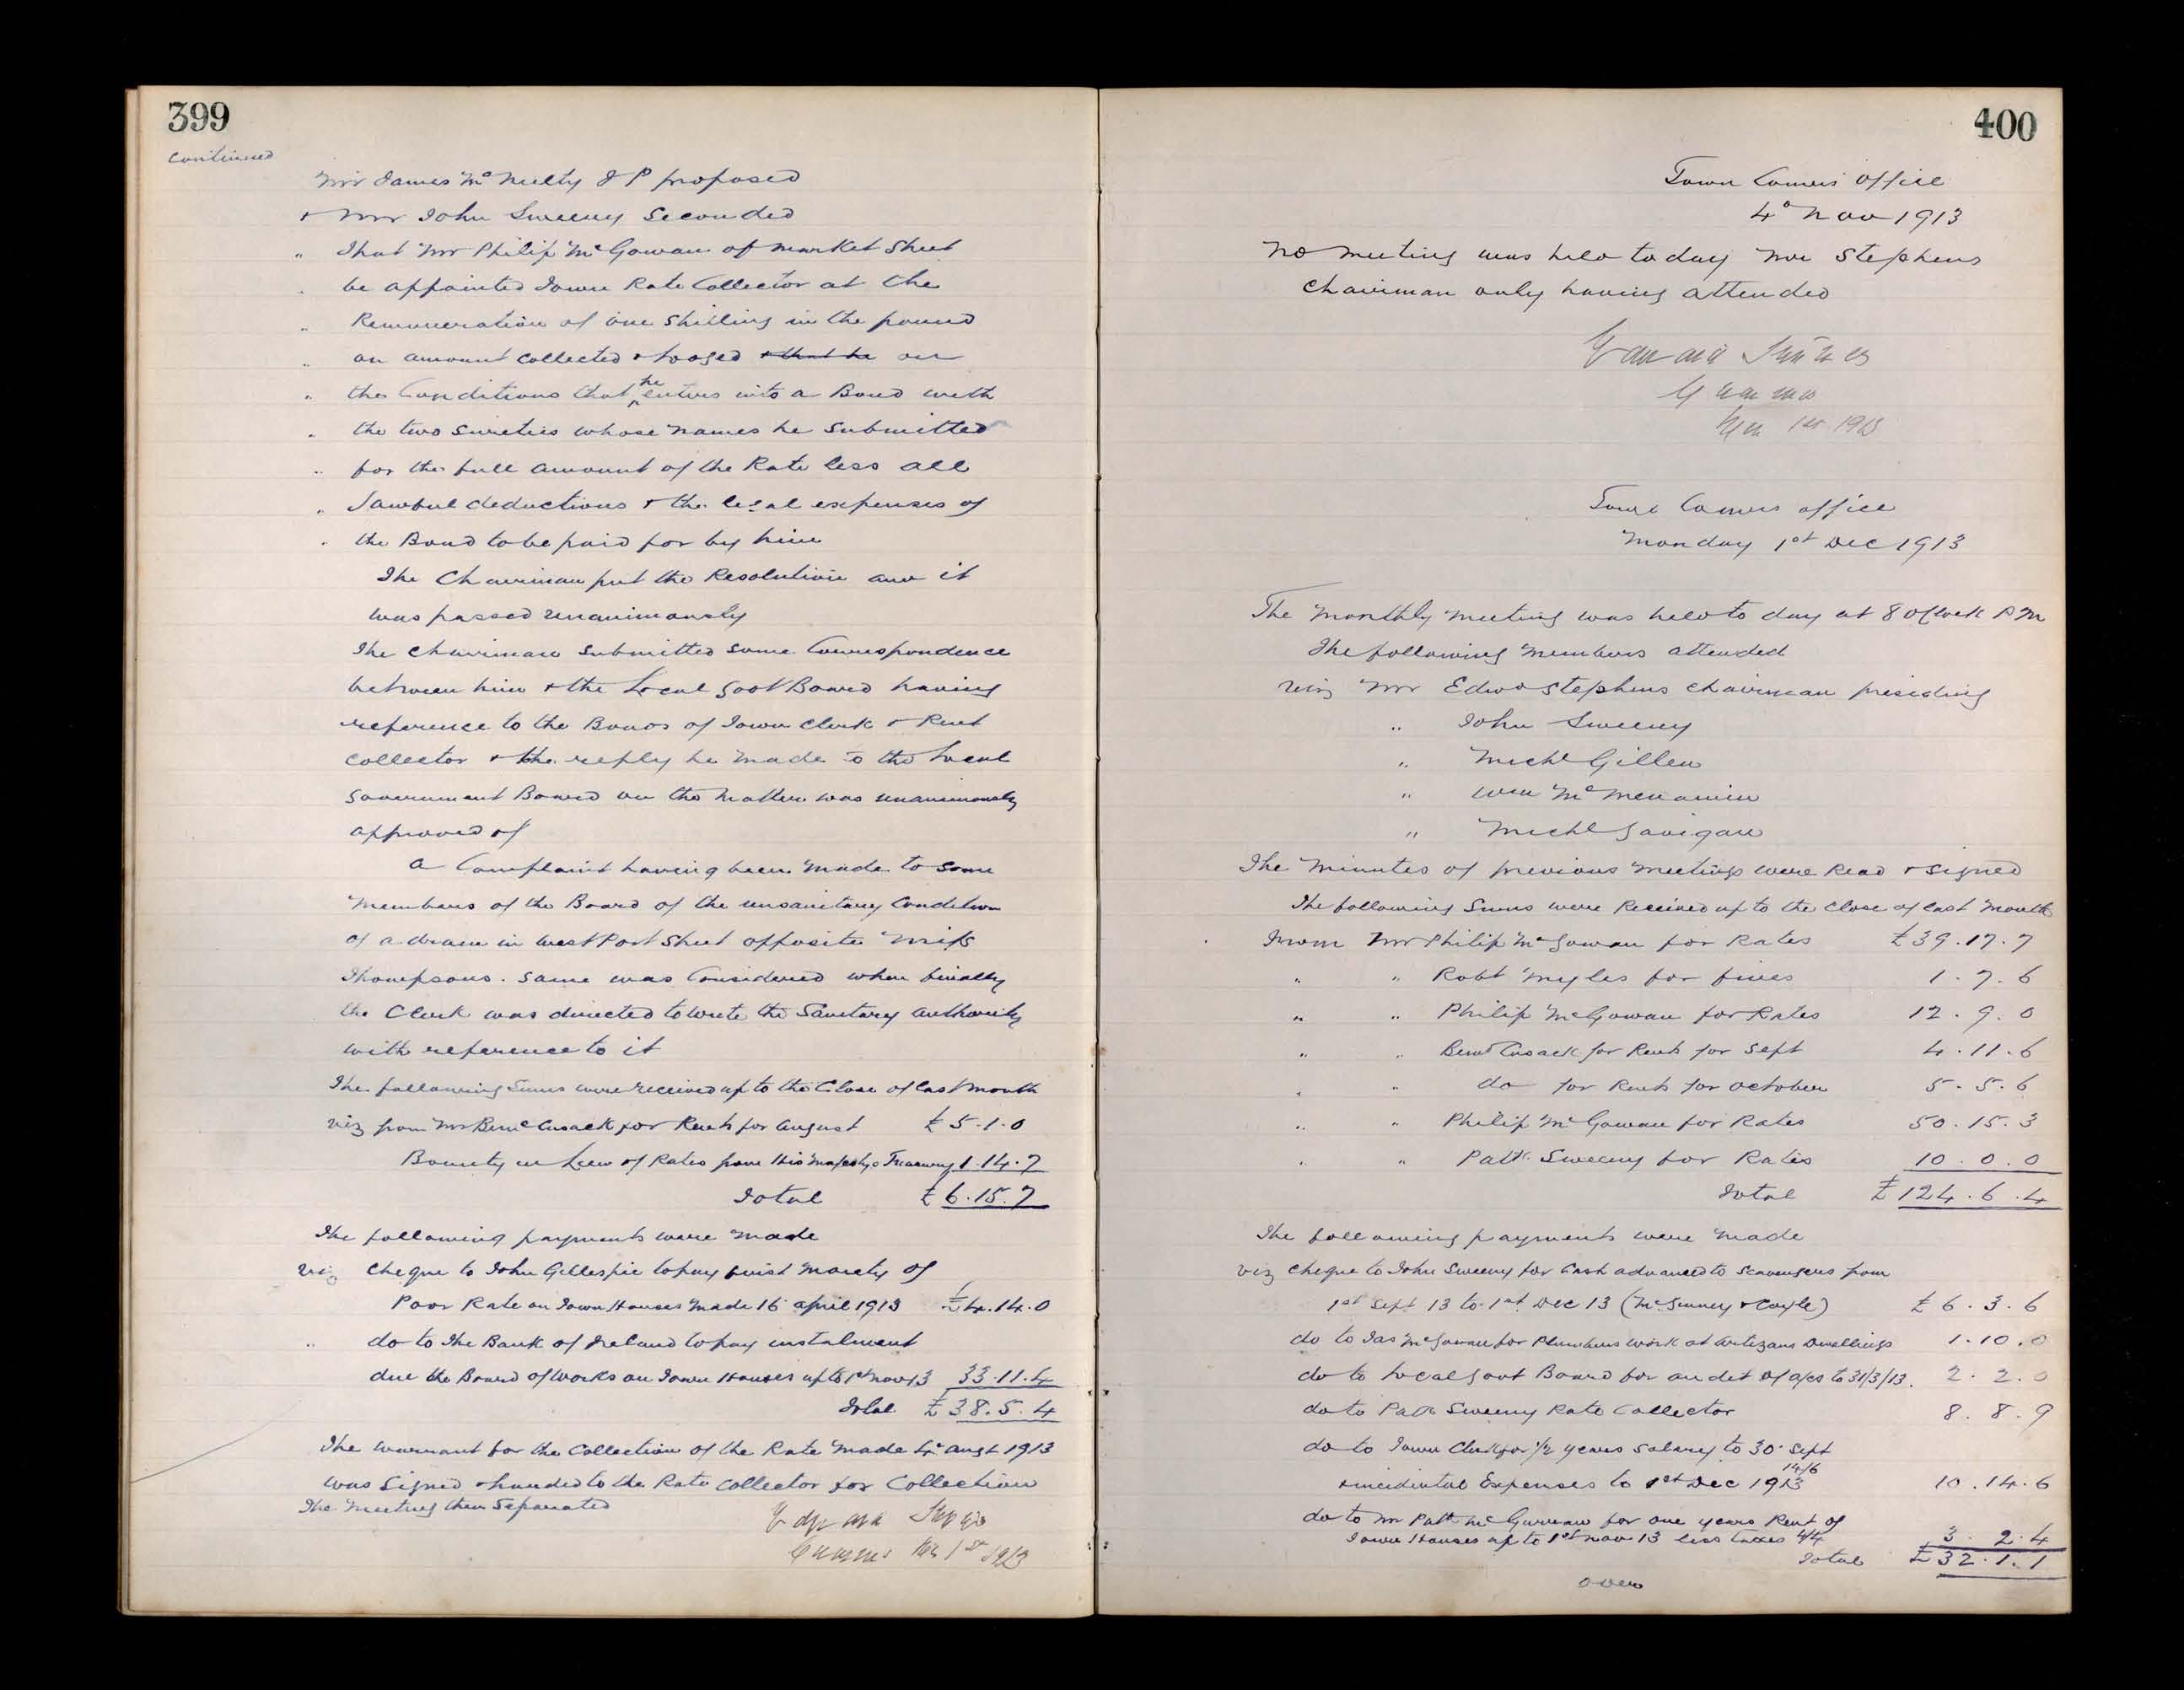 399
continued
Mr James McNulty J P proposed
& Mr John Sweeny Seconded
" That Mr Philip McGowan of Market Street
be appointed Town Rate Collector at the
" Remuneration of one Shilling in the pound
" on amount Collected & lodged & that he on
" the Conditions that he enters into a Bond with
" the two Sureties whose names he Submitted
" for the full amount of the Rate less all
" lawful deductions & the legal expenses of
" the Bond to be paid for by him
The Chairman put the Resolution and it
was passed unanimously
The Chairman Submitted some Correspondence
between him & the Local Govt Board having
reference to the Bonds of Town Clerk & Rent
Collector & the reply he made to the Local
Government Board on the matter was unanimously
approved of
A Complaint having been made to some
Members of the Board of the unsanitary Condition
of a drain in West Port Street opposite Miss
Thompsons. Same was Considered when finally
the Clerk was directed to write the Sanitary Authority
with reference to it
The following Sums were received up to the Close of last month
viz from Mr Bernd Cusack for Rents for August £5.1.0
Bounty in Lieu of Rates from His Majestys Treasury 1.14.7
Total £6.15.7
The following payments were made
viz Cheque to John Gillespie to pay first Moiety of
Poor Rate on Town Houses made 16 April 1913 £4.14.0
" do to the Bank of Ireland to pay instalment
due the Board of Works on Town Houses up to 1st Nov 13 33.11.4
Total £38.5.4
The warrant for the Collection of the Rate made 4° Augt 1913
was Signed & handed to the Rate Collector for Collection
The Meeting then Separated
Dec 1st 1913
400
Town Comrs Office
4° Nov 1913
No meeting was held today Mr Stephens
Chairman only having attended
Edward Stephens
Chairman
Dec 1st 1913
Town Comrs office
Monday 1st Dec 1913
The Monthly Meeting was held to day at 8 O'Clock P M
The following Members attended
viz Mr Edwd Stephens Chairman presiding
" John Sweeny
" Michl Gillen
" Wm McMenamin
" Michl Gavigan
The Minutes of previous Meetings were Read & Signed
The following Sums were Received up to the Close of last Month
From Mr Philip McGowan for Rates £39.17.7
" " Robt Myles for fines 1.7.6
" " Philip McGowan for Rates 12.9.0
" " Bernd Cusack for Rents for Sept 4.11.6
" " do for Rents for October 5.5.6
" " Philip McGowan for Rates 50.15.3
" " Patk Sweeny for Rates 10.0.0
Total £124.6.4
The following payments were made
viz Cheque to John Sweeny for Cash advanced to Scavengers from
1st Sept 13 to 1st Dec 13 (McGinney & Coyle) £6.3.6
do to Jas McGowan for Plumbers work at Artizans Dwellings 1.10.0
do to Local Govt Board for audit of a/cs to 31/3/13. 2.2.0
do to Patk Sweeny Rate Collector 8.8.9
do to Town Clerk for 1/2 years Salary to 30 Sept
14/6
& incidental Expenses to 1st Dec 1913 10.14.6
do to Mr Patk for one years Rent of
Town Houses up to 1st Nov 13 less taxes 4/4 3.2.4
Total £32.1.1
over